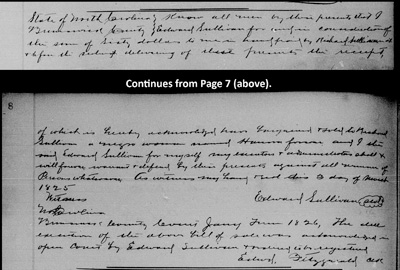 State of North Carolina, Know all men by these presents that I
Brunswick County Edward Sullivan for and in consideration of
the sum of Sixty dollars to me in hand paid by Richard Sullivan at
& before the sealing & delivering of these presents the receipt
Continues from Page 7 (above).
8
of which is hereby acknowledged have bargained & sold to Richard
Sullivan a negro woman named and I the
said Edward Sullivan for myself my executors & administrators shall &
will forever warrant & defend by these presents against all manner of
Persons whatsoever. As witness my hand this 3 day of
1825
Witness Edward Sullivan (seal)
Brunswick County Court June 1826, The due
execution of the above bill of sale was acknowledged in
open Court by Edward Sullivan & ordered to be registered